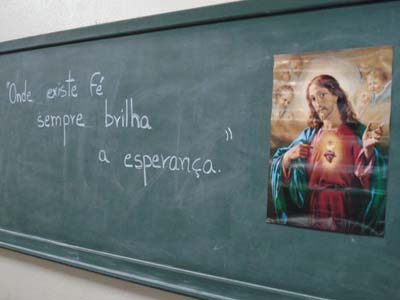 "Onde existe Fé
sempre brilha
a esperança."